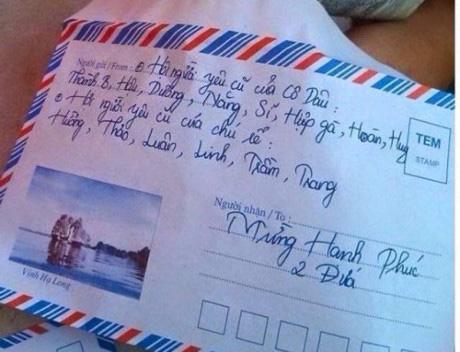 Người gửi / From : Hội người yêu cũ của Cô Dâu :
Thành B, Hải, Dưỡng, Nang, Sĩ, Hiệp gà, Hoàn, Huy
Hội người yêu cũ của chú rể :
Hường, Thảo, Luân, Linh, Trầm, Trang
TEM
STAMP
Vịnh Hạ Long
Người nhận / To :
Mừng Hạnh Phúc
2 Đứa